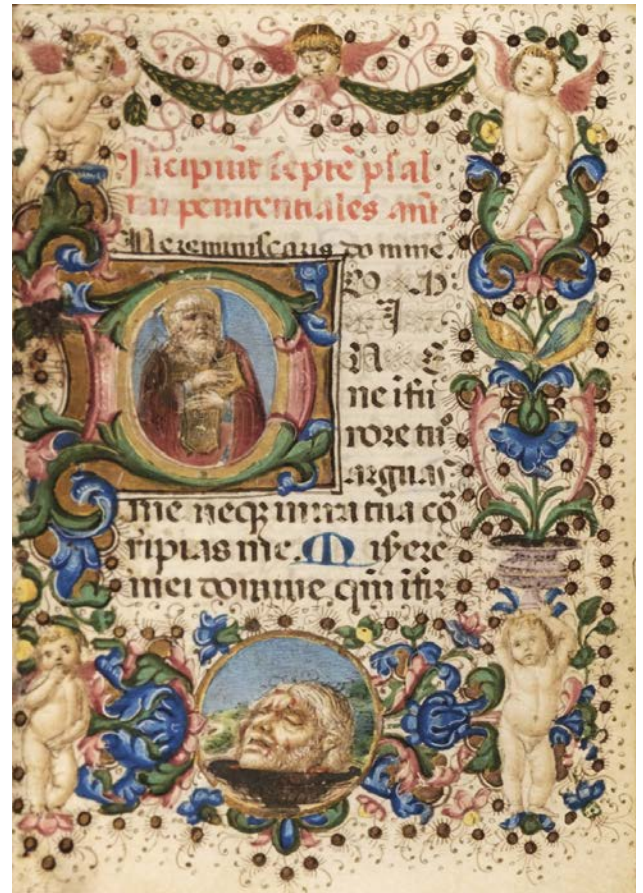 Incipiūt septē psal
mi penitentiales añt
Ne reminiscaris domine
DO M
I
N E
ne ī fu
rore tu
arguas
me neqȝ in ira tua cō
ripias me. Misere
mei domine qm̄ ifir